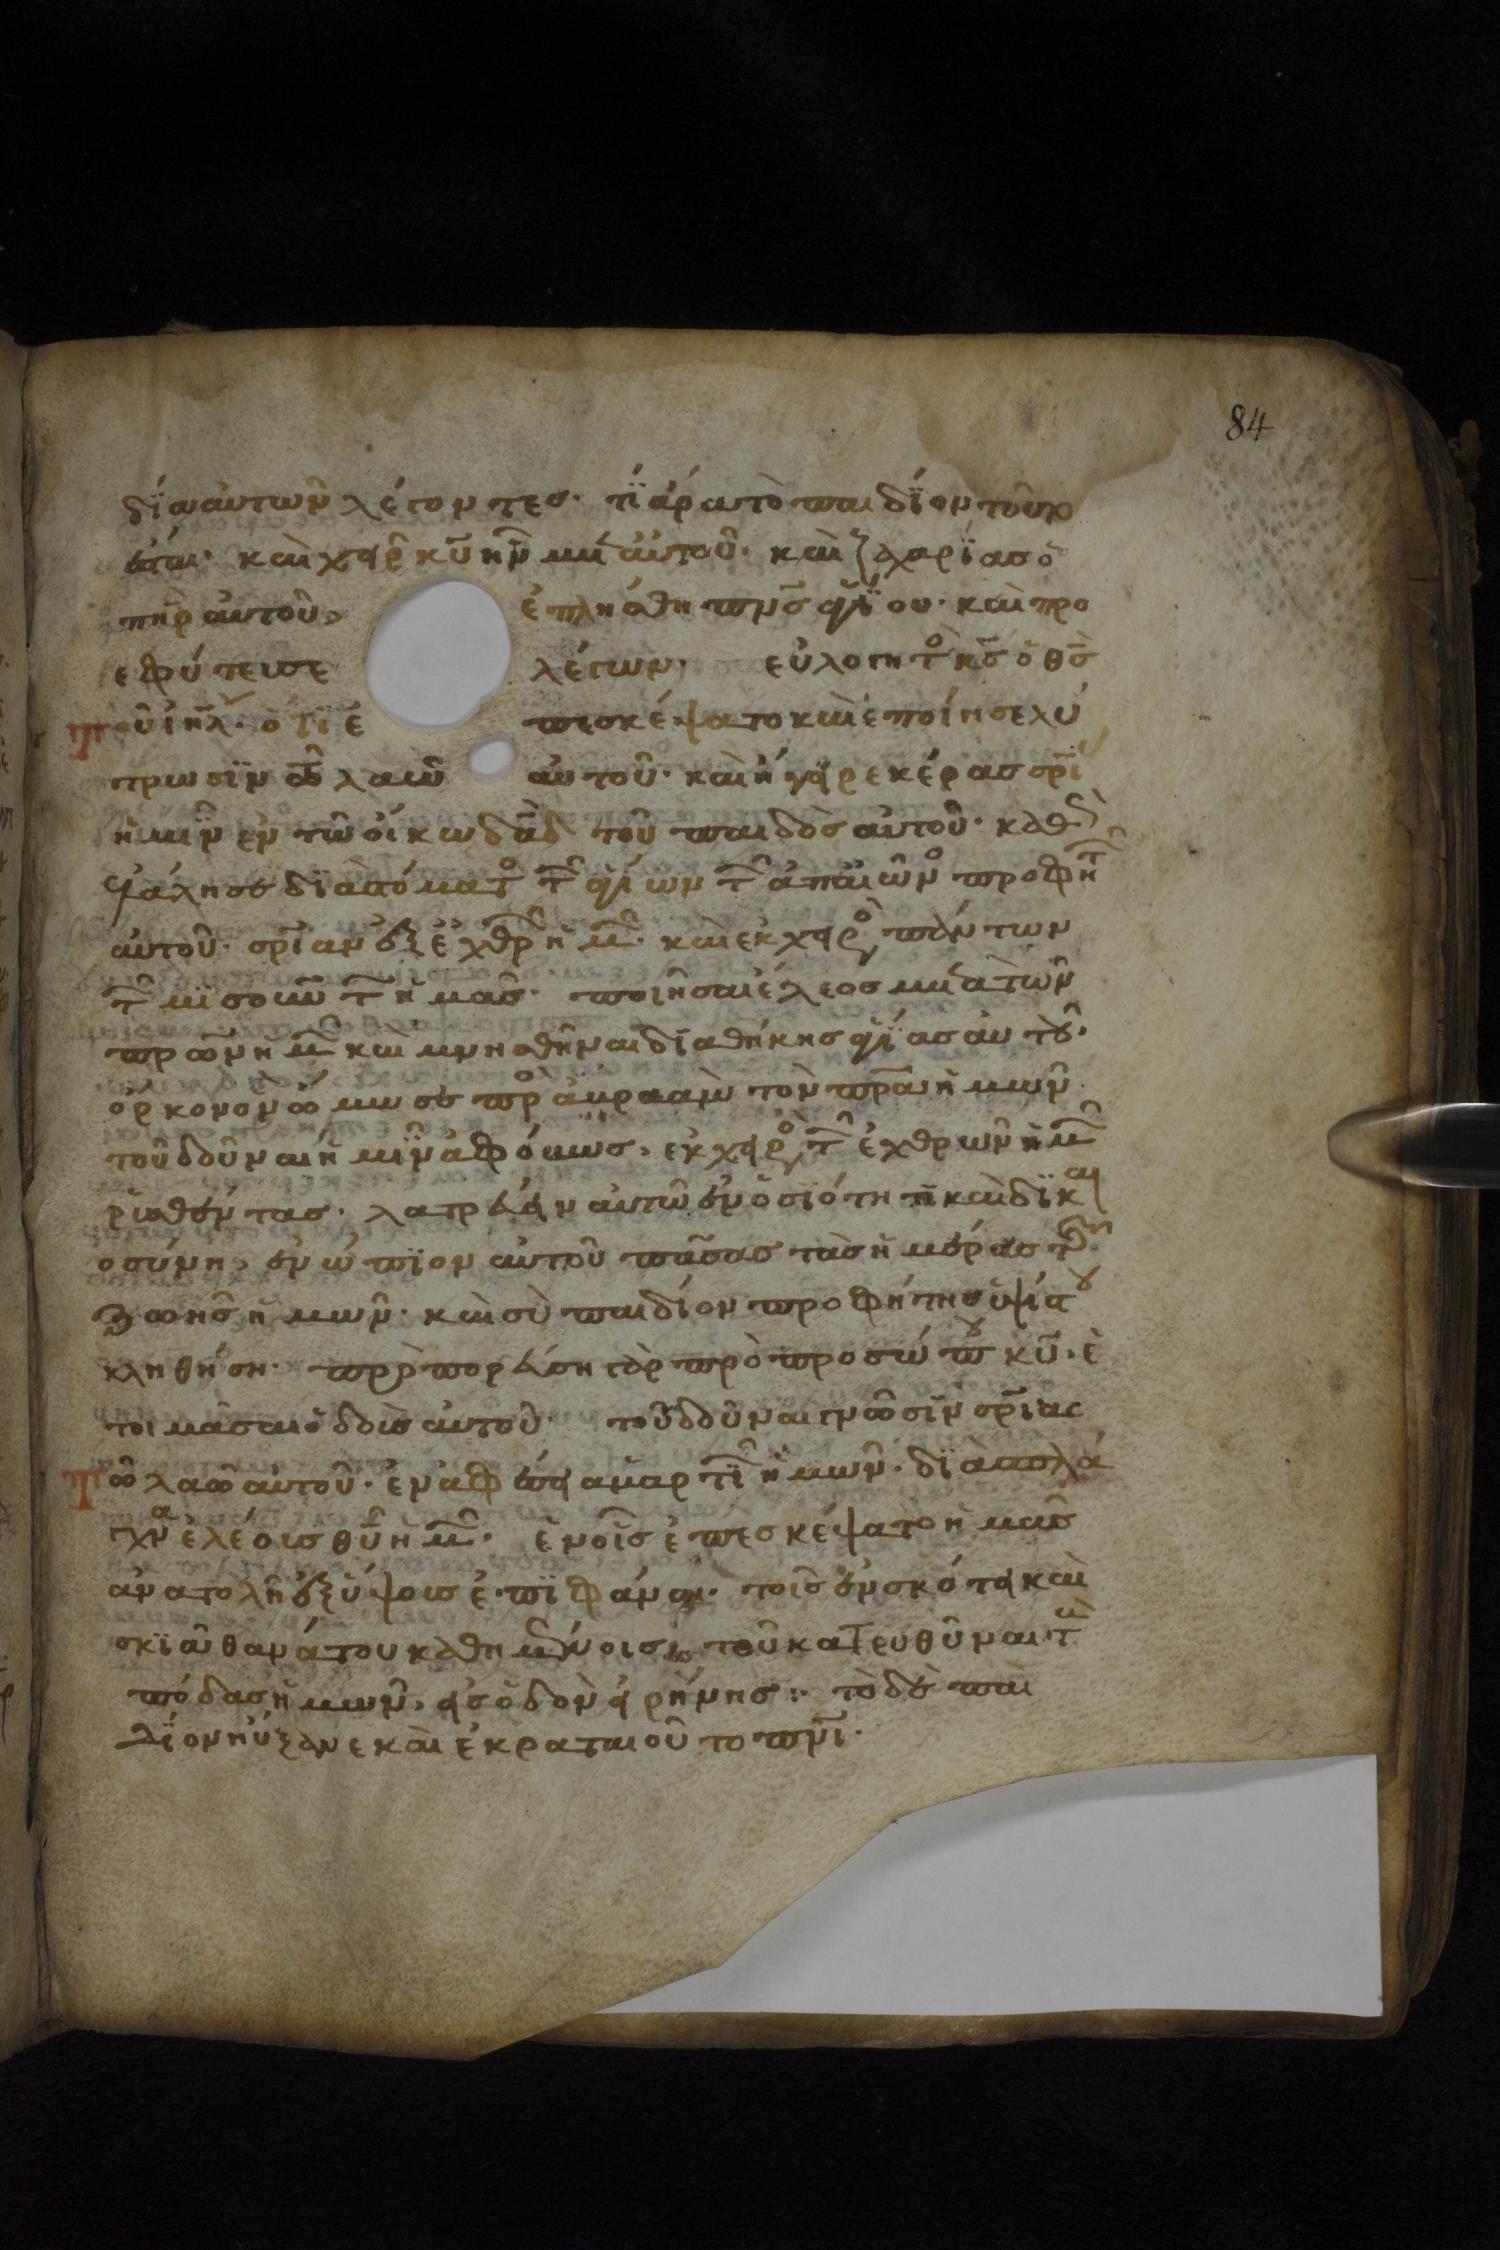 84
δία αὐτῶν λέγοντες· τί ἄρα τὸ παιδίον τοῦτο
έσται· καὶ χεὶρ κ̅υ̅ ἦν μετ' αὐτοῦ· καὶ ζαχαρίας ὁ
π̅η̅ρ̅ αὐτοῦ, ἐπλήσθη π̅ν̅ς̅ ἁγίου· καὶ προ
εφύτευσε λέγων· εὐλογητὸς κ̅ς̅ ὁ θ̅ς̅
Τοῦ ι̅η̅λ̅· ὅτι ἐ πεσκέψατο καὶ ἐποίησε λύ
τρωσιν τῶ λαῶ αὐτοῦ· καὶ ἤγειρε κέρας σ̅ρ̅ί̅
ἡμῖν ἐν τῶ οίκω δ̅α̅δ̅ τοῦ παιδὸς αὐτοῦ· καθὼς
ἐλάλησε διὰ στόματος τῶν ἁγίων τῶν ἀπ' αἰῶνος προφητ
αὐτοῦ· σ̅ρ̅ί̅αν ἐξ ἐχθρῶν ἡμῶν· καὶ ἐκ χειρὸς πάντων
τῶν μισούντων ἡμᾶς· ποιῆσαι έλεος μετὰ τῶν
π̅ρ̅ων ἡμῶν καὶ μνησθῆναι διαθήκης ἁγίας αὐτοῦ·
όρκον ὃν ώμωσε πρὸς ἀβραὰμ τὸν π̅ρ̅α̅ ἡμῶν
τοῦ δοῦναι ἡμῖν ἀφόβως, ἐκ χειρὸς τῶν ἐχθρῶν ἡμῶν
ρυσθέντας· λατρεύειν αὐτῶ ἐν ὁσιότητι καὶ δικαι
οσύνη, ἐνώπιον αὐτοῦ πάσας τὰς ἡμέρας τῆς
ζωῆς ἡμῶν· καὶ σὺ παιδίον προφήτης ὑψίστου
κληθήση· προπορεύση γὰρ πρὸ προσώπου κ̅υ̅· ἑ
τοιμάσαι ὁδοὺς αὐτοῦ· τοῦ δοῦναι γνῶσιν σ̅ρ̅ί̅ας
Τῶ λαῶ αὐτοῦ· ἐν ἀφέσει ἁμαρτιῶν ἡμῶν· διὰ σπλά
γχνα ἐλέους θ̅υ̅ ἡμῶν· ἐν οἷς ἐπεσκέψατο ἡμᾶς
ανατολὴ ἐξ ύψους ἐπιφάναι· τοῖς ἐν σκότει καὶ
σκιᾶ θανάτου καθημένοις, τοῦ κατευθῦναι τοὺς
πόδας ἡμῶν, εἰς ὁδὸν εἰρήνης: τὸ δὲ παι
δίον ηύξανε καὶ ἐκραταιοῦτο π̅ν̅ι̅·